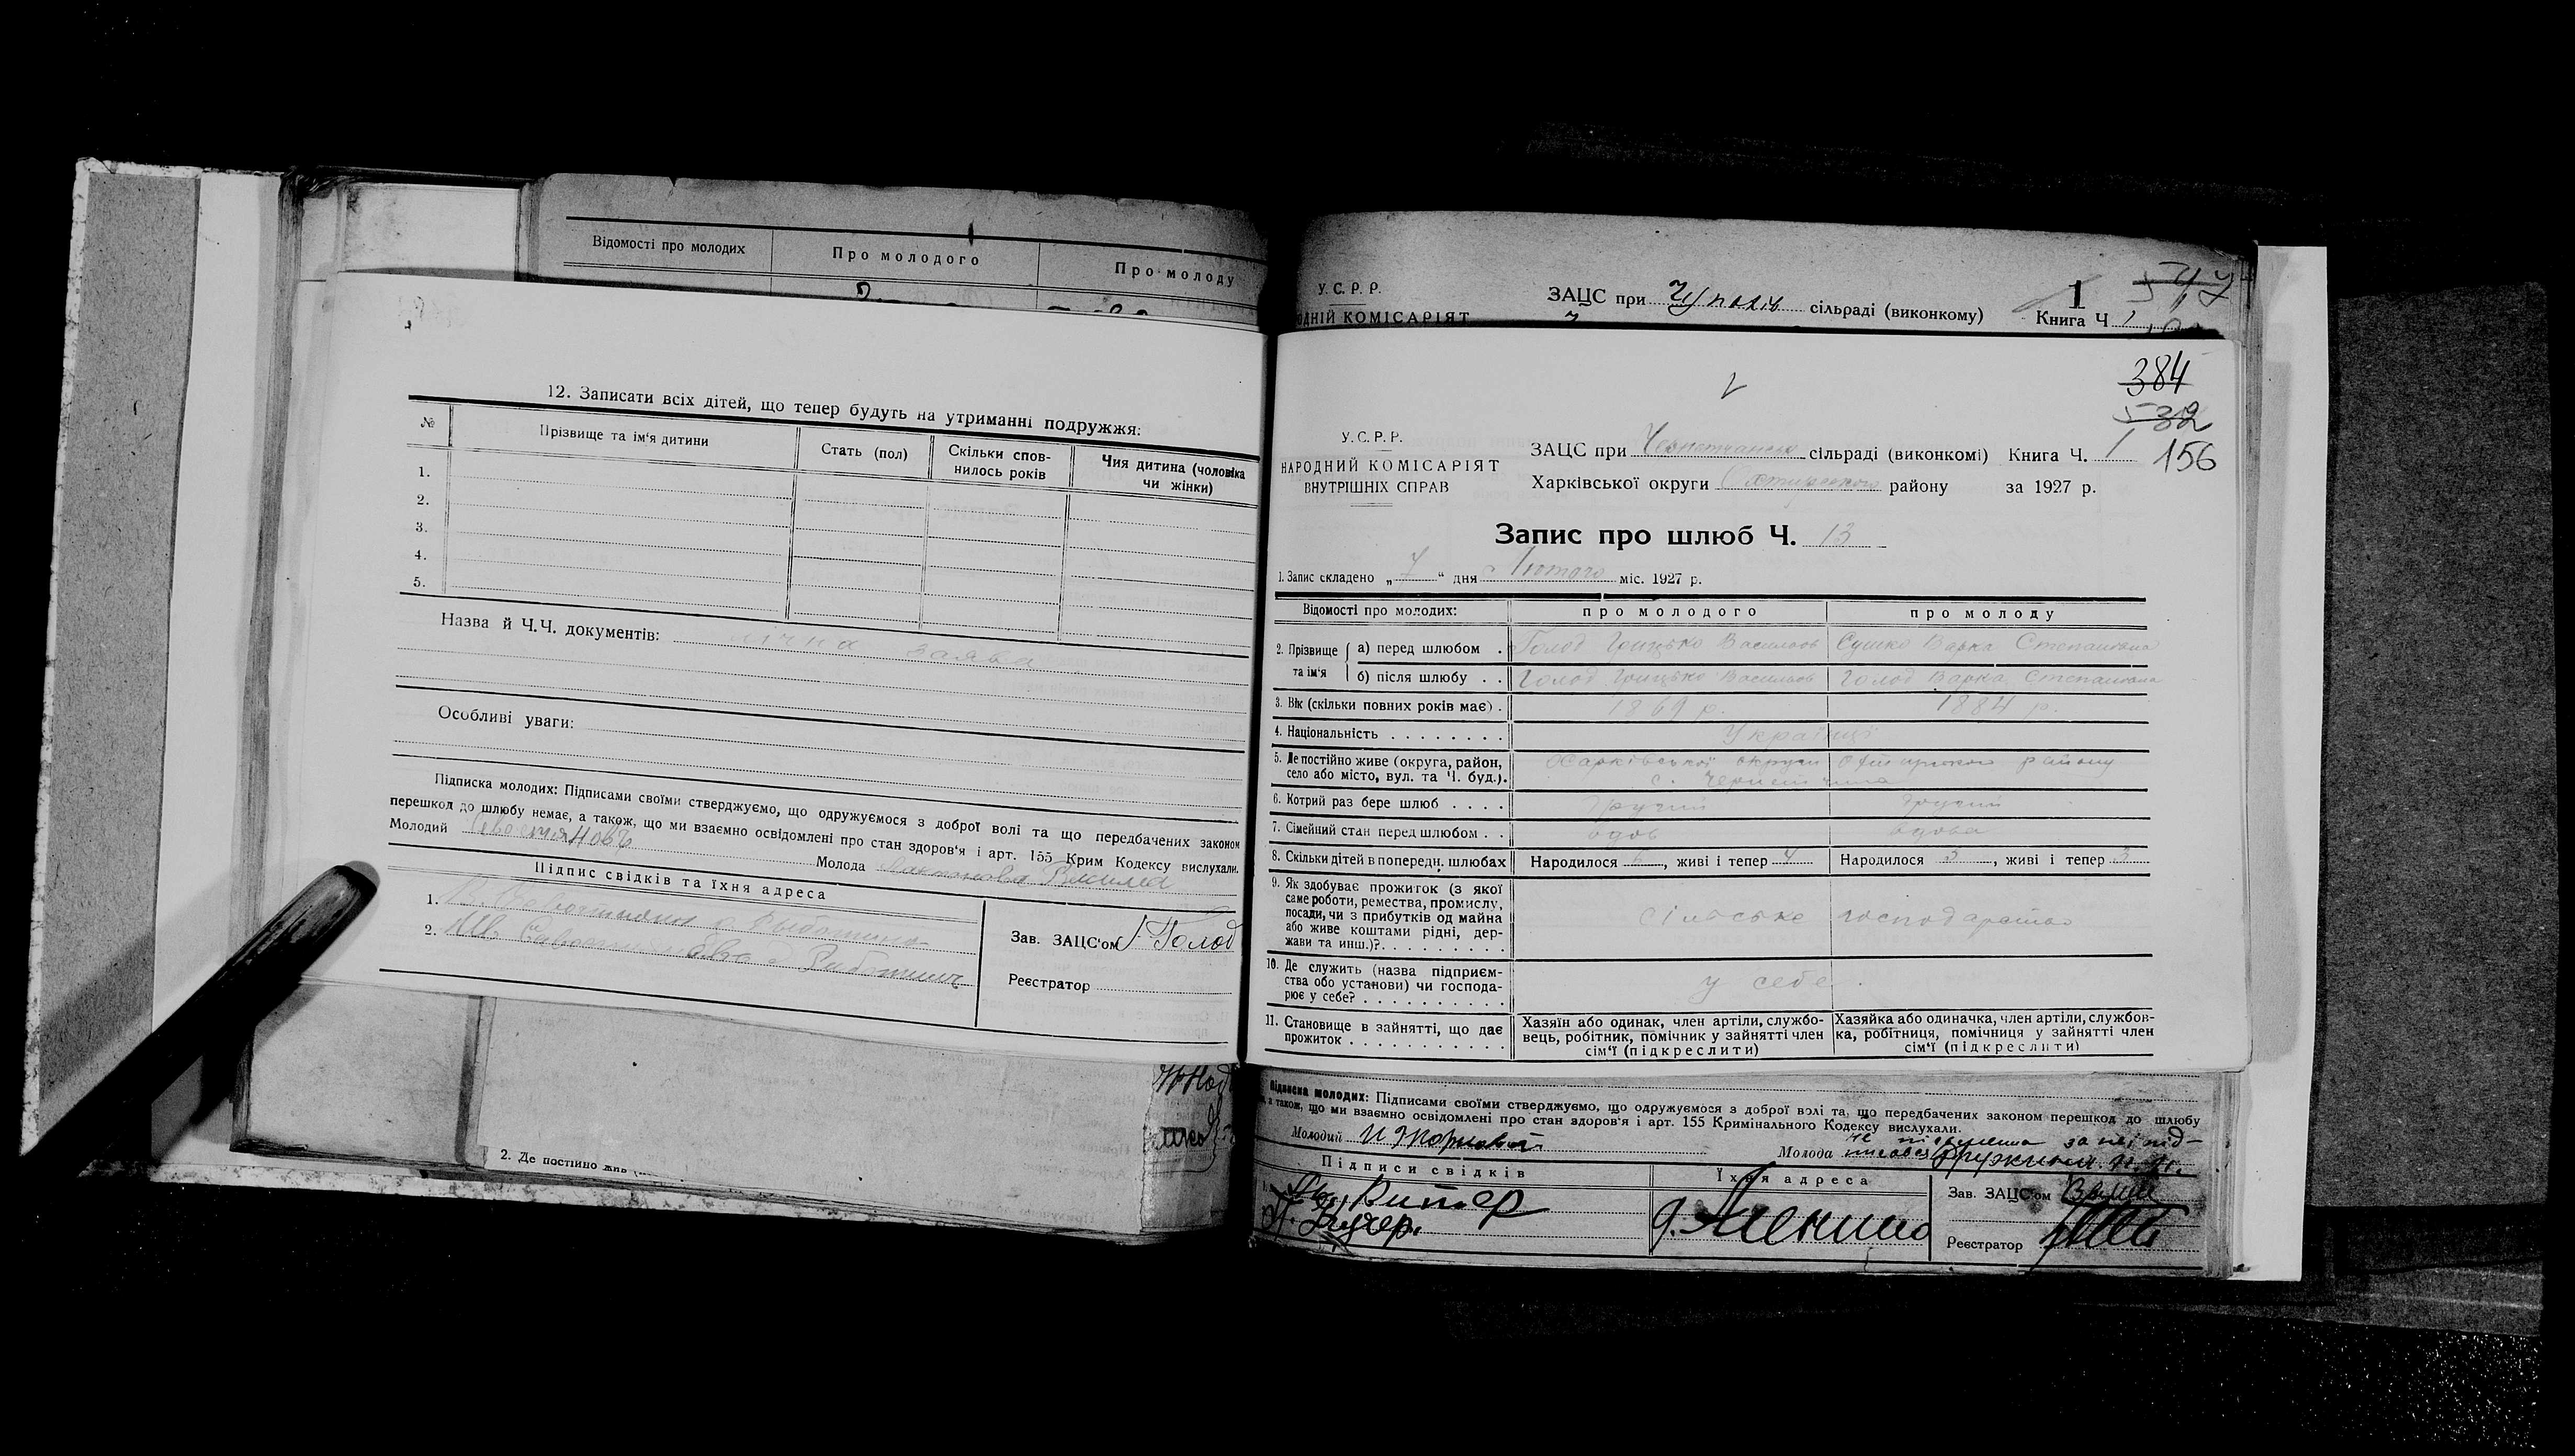 Відомості про молодих
Про молодого
Про молоду
12. Записати всіх дітей, що тепер будуть на утриманні подружжя:
№
Прізвище та ім'я дитини
Стать (пол)
Скільки спов-
нилось років
Чия дитина (чоловіка
чи жінки)
1.
2.
3.
4.
5.
Назва й Ч.Ч. документів: лічна заява
Особливі уваги:
Підписка молодих: Підписами своїми стверджуємо, що одружуємося з доброї волі та що передбачених законом
перешкод до шлюбу немає, а також, що ми взаємно освідомлені про стан здоров'я і арт. 155 Крим Кодексу вислухали.
Молодий
Молода
Підпис свідків та їхня адреса
1.
2.
Зав. ЗАЦС'ом Голод
Реєстратор
2. Де постійно жив
У. С. Р. Р.
ЗАЦС при сільраді (виконкому)
1
547
НАРОДНІЙ КОМІСАРІЯТ
Книга Ч. 1
384
532
156
У. С. Р. Р.
НАРОДНИЙ КОМІСАРІЯТ
ВНУТРІШНІХ СПРАВ
ЗАЦС при сільраді (виконкомі) Книга Ч. 1
Харківської округи Охтирського району за 1927 р.
Запис про шлюб Ч. 13
1. Запис складено „7“ дня Лютого міс. 1927 р.
Відомості про молодих:
про молодого
про молоду
2. Прізвище та ім'я
а) перед шлюбом . Голод Грицько Васильов Сушко Варка Степановна
б) після шлюбу . . Голод Грицько Васильов Голод Варка Степановна
3. Вік (скільки повних років має) . 1869 р. 1884 р.
4. Національність . . . . . . . . Українці
5. Де постійно живе (округа, район,
село або місто, вул. та Ч. буд.). Харківської округи Охтирського району
с. Чернеччина
6. Котрий раз бере шлюб . . . . другий другий
7. Сімейний стан перед шлюбом . . вдов вдова
8. Скільки дітей в попередн. шлюбах Народилося 6, живі і тепер 4 Народилося 3, живі і тепер 3
9. Як здобуває прожиток (з якої
саме роботи, ремества, промислу,
посади, чи з прибутків од майна
або живе коштами рідні, дер-
жави та инш.)?. . . . . . . . . . сільське господарство
10. Де служить (назва підприєм-
ства обо установи) чи господа-
рює у себе? . . . . . . . . . . у себе.
11. Становище в зайнятті, що дає
прожиток . . . . . . . . . . .
Хазяїн або одинак, член артіли, службо-
вець, робітник, помічник у зайнятті член
сім'ї (підкреслити)
Хазяйка або одиначка, член артіли, службов-
ка, робітниця, помічниця у зайнятті член
сім'ї (підкреслити)
Підписка молодих: Підписами своїми стверджуємо, що одружуємося з доброї волі та, що передбачених законом перешкод до шлюбу
а також, що ми взаємно освідомлені про стан здоров'я і арт. 155 Кримінального Кодексу вислухали.
Молодий
Молода
Підписи свідків
Їхня адреса
Зав. ЗАЦС'ом
Реєстратор